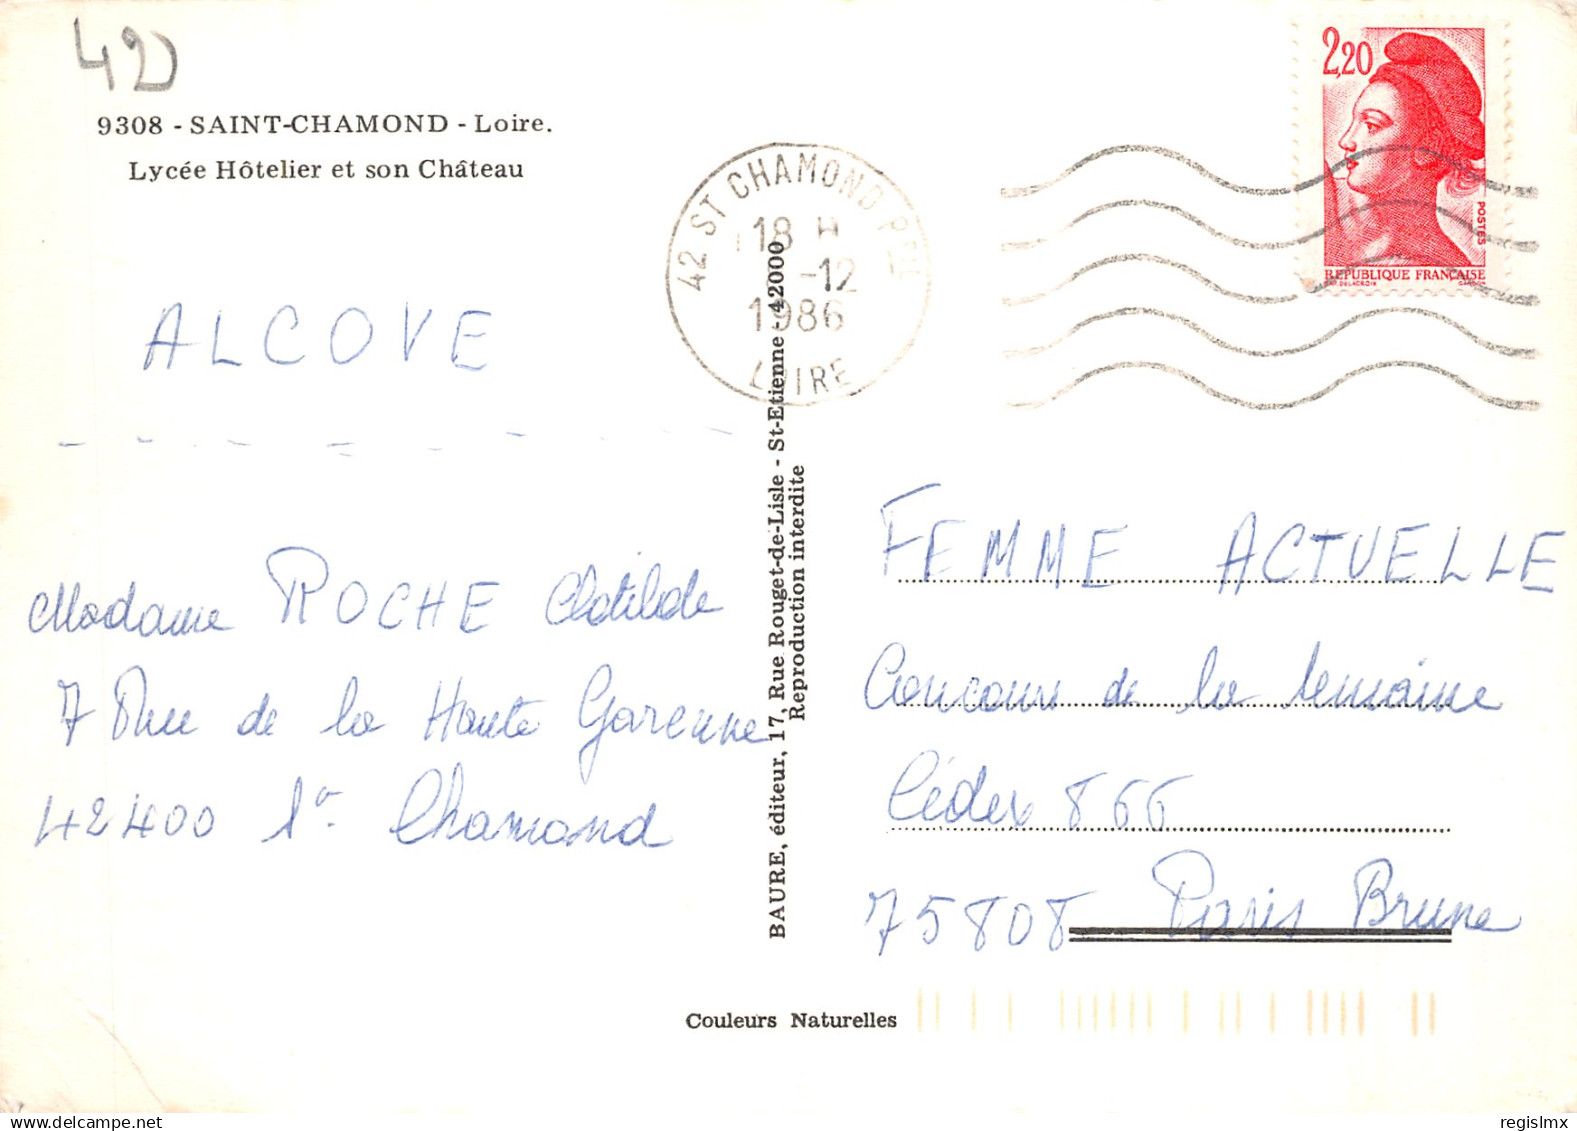 42
9308 - SAINT-CHAMOND - Loire.
Lycée Hôtelier et son Château
2,20
POSTES
REPUBLIQUE FRANÇAISE
DELACROIX
GANDON
42 ST CHAMOND PAL
18 H
-12
1986
LOIRE
ALCOVE
Madame ROCHE Clotilde
7 Rue de la Haute Garenne
42400 St. Chamond
BAURE, éditeur, 17, Rue Rouget-de-Lisle - St-Etienne - 42000
Reproduction interdite
FEMME ACTUELLE
Concours de la semaine
Cédex 866
75808 Paris Brune
Couleurs Naturelles
regislmx